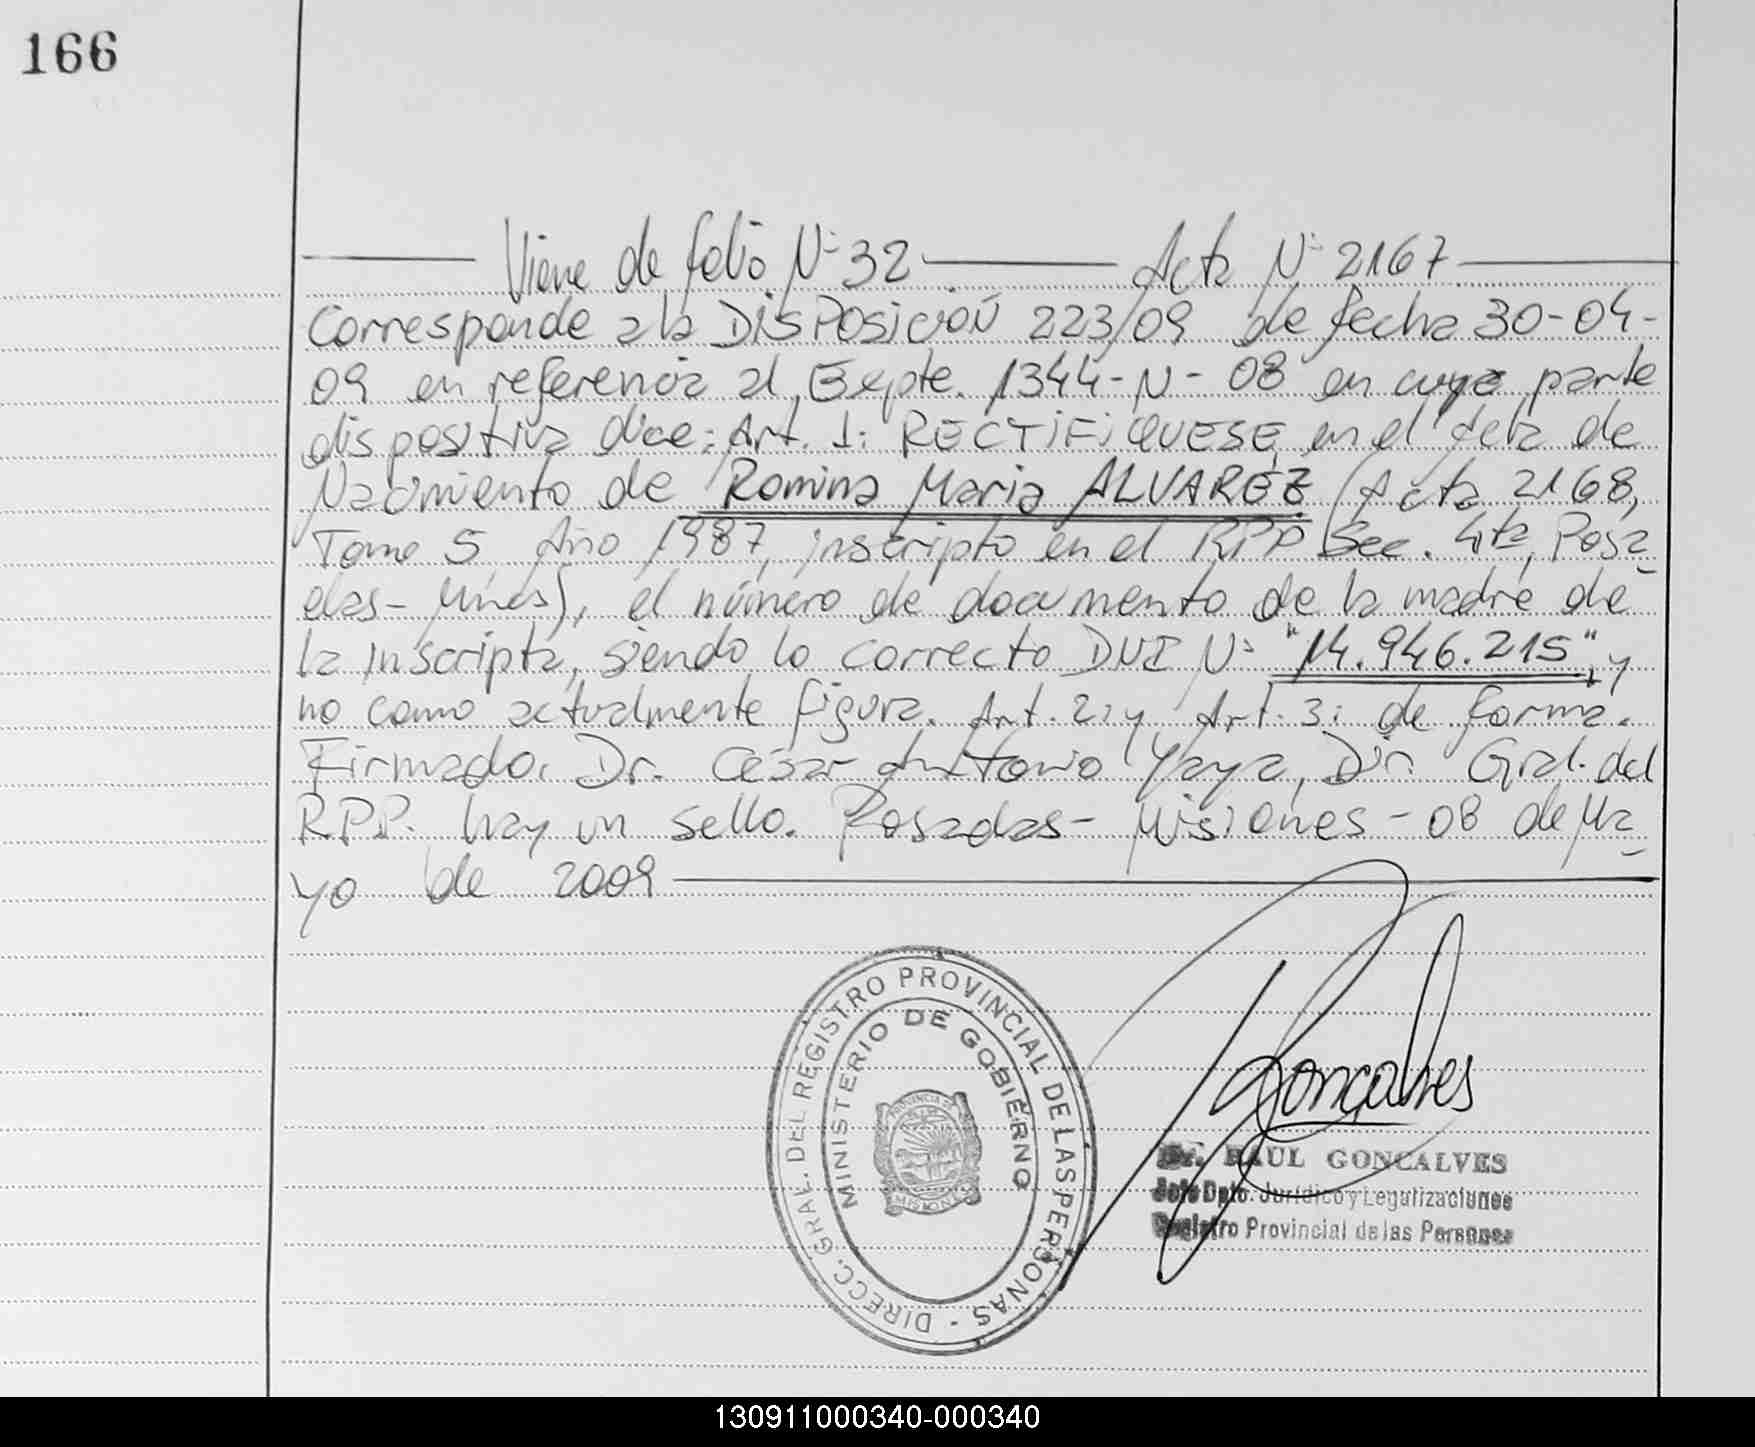 166
Viene de folio N° 32 Acta N° 2167
Corresponde a la DISPOSICIÓN 223/09 de fecha 30-04-
09 en referencia al Expte. 1344-N-08 en cuya parte
dispositiva dice: Art. 1: RECTIFIQUESE, en el Acta de
Nacimiento de Romina Maria ALVAREZ (Acta 2168,
Tomo 5, Año 1987, inscripto en el RPP Sec. 4ta, Posa
das- Mnes), el número de documento de la madre de
la inscripta, siendo lo correcto DUI N° "14.946.215", y
no como actualmente figura. Art. 2: y Art. 3: de forma.
Firmado. Dr. César Antonio Yaya, Dir. Gral. del
R.P.P. hay un sello. Posadas- Misiones - 08 de Ma
yo de 2009
DIRECC. GRAL. DEL REGISTRO PROVINCIAL DE LAS PERSONAS -
MINISTERIO DE GOBIERNO
PROVINCIA DE
MISIONES
Gonçalves
Dr. RAUL GONCALVES
Jefe Dpto. Jurídico y Legalizaciones
Registro Provincial de las Personas
130911000340-000340